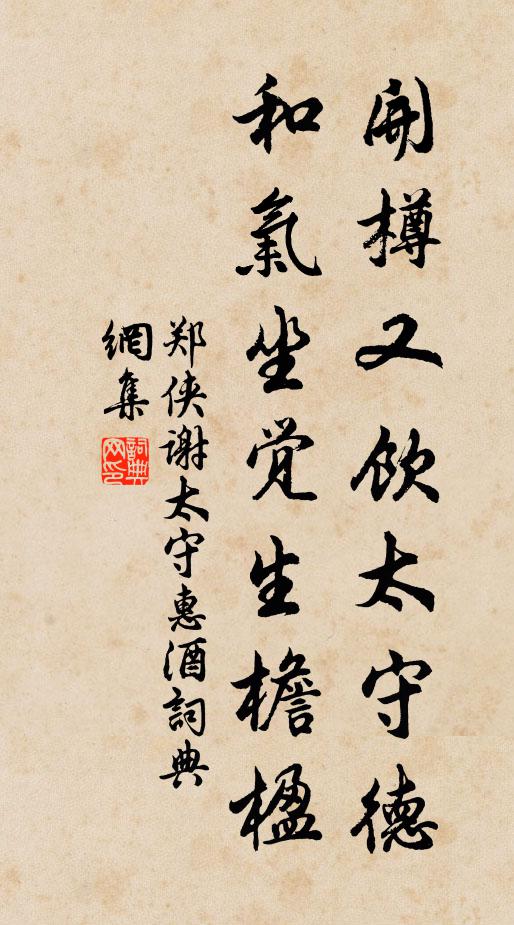 開樽又飲太守德
和氣坐觉生檐楹
郑侠谢太守惠酒詞典
網集
詞典网印